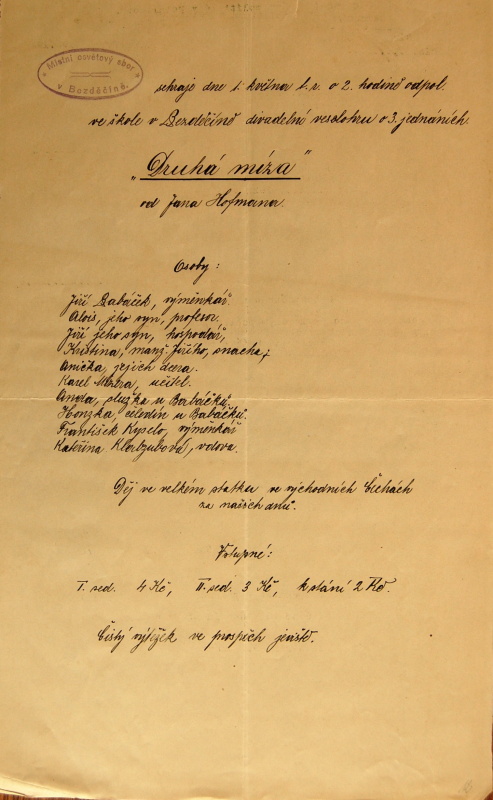 Místní osvětový sbor
v Bezděčíně.
sehraje dne 1. května t. r. o 2. hodině odpol.
ve škole v Bezděčíně divadelní veselohru o 3. jednáních.
„Druhá míza“
od Jana Hofmana.
Osoby:
Jiří Babáček, výměnkář.
Alois, jeho syn, profesor.
Jiří jeho syn, hospodář,
Kristina, manž. Jiřího, snacha,
Anička, jejich dcera.
Karel učitel.
služka u Babáčků.
Honzka čeledín u Babáčků.
František Kyselo, výměnkář
Kateřina Klabzubová, vdova.
Děj ve velkém statku ve východních Čechách
za našich dnů.
Vstupné:
I. sed. 4 Kč, II. sed. 3 Kč, k stání 2 Kč.
Čistý výtěžek ve prospěch jeviště.